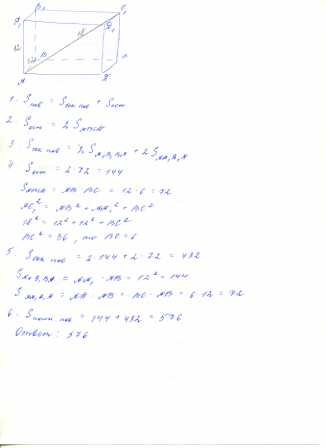 B₁ C₁
A₁ D₁
18
12
B C
12
A D
1. Sпов = Sбок пов + Sосн
2. Sосн = 2 SABCD
3. Sбок пов = 2 SAA₁B₁B + 2 SAA₁D₁D
4. Sосн = 2 · 72 = 144
SABCD = AB · BC = 12 · 6 = 72
AC₁² = AB² + AA₁² + BC²
18² = 12² + 12² + BC²
BC² = 36, то BC = 6
5. Sбок пов = 2 · 144 + 2 · 72 = 432
SAA₁B₁B = AA₁ · AB = 12² = 144
= 6 · 12 = 72
6. Sполн пов = 144 + 432 = 576
Ответ: 576